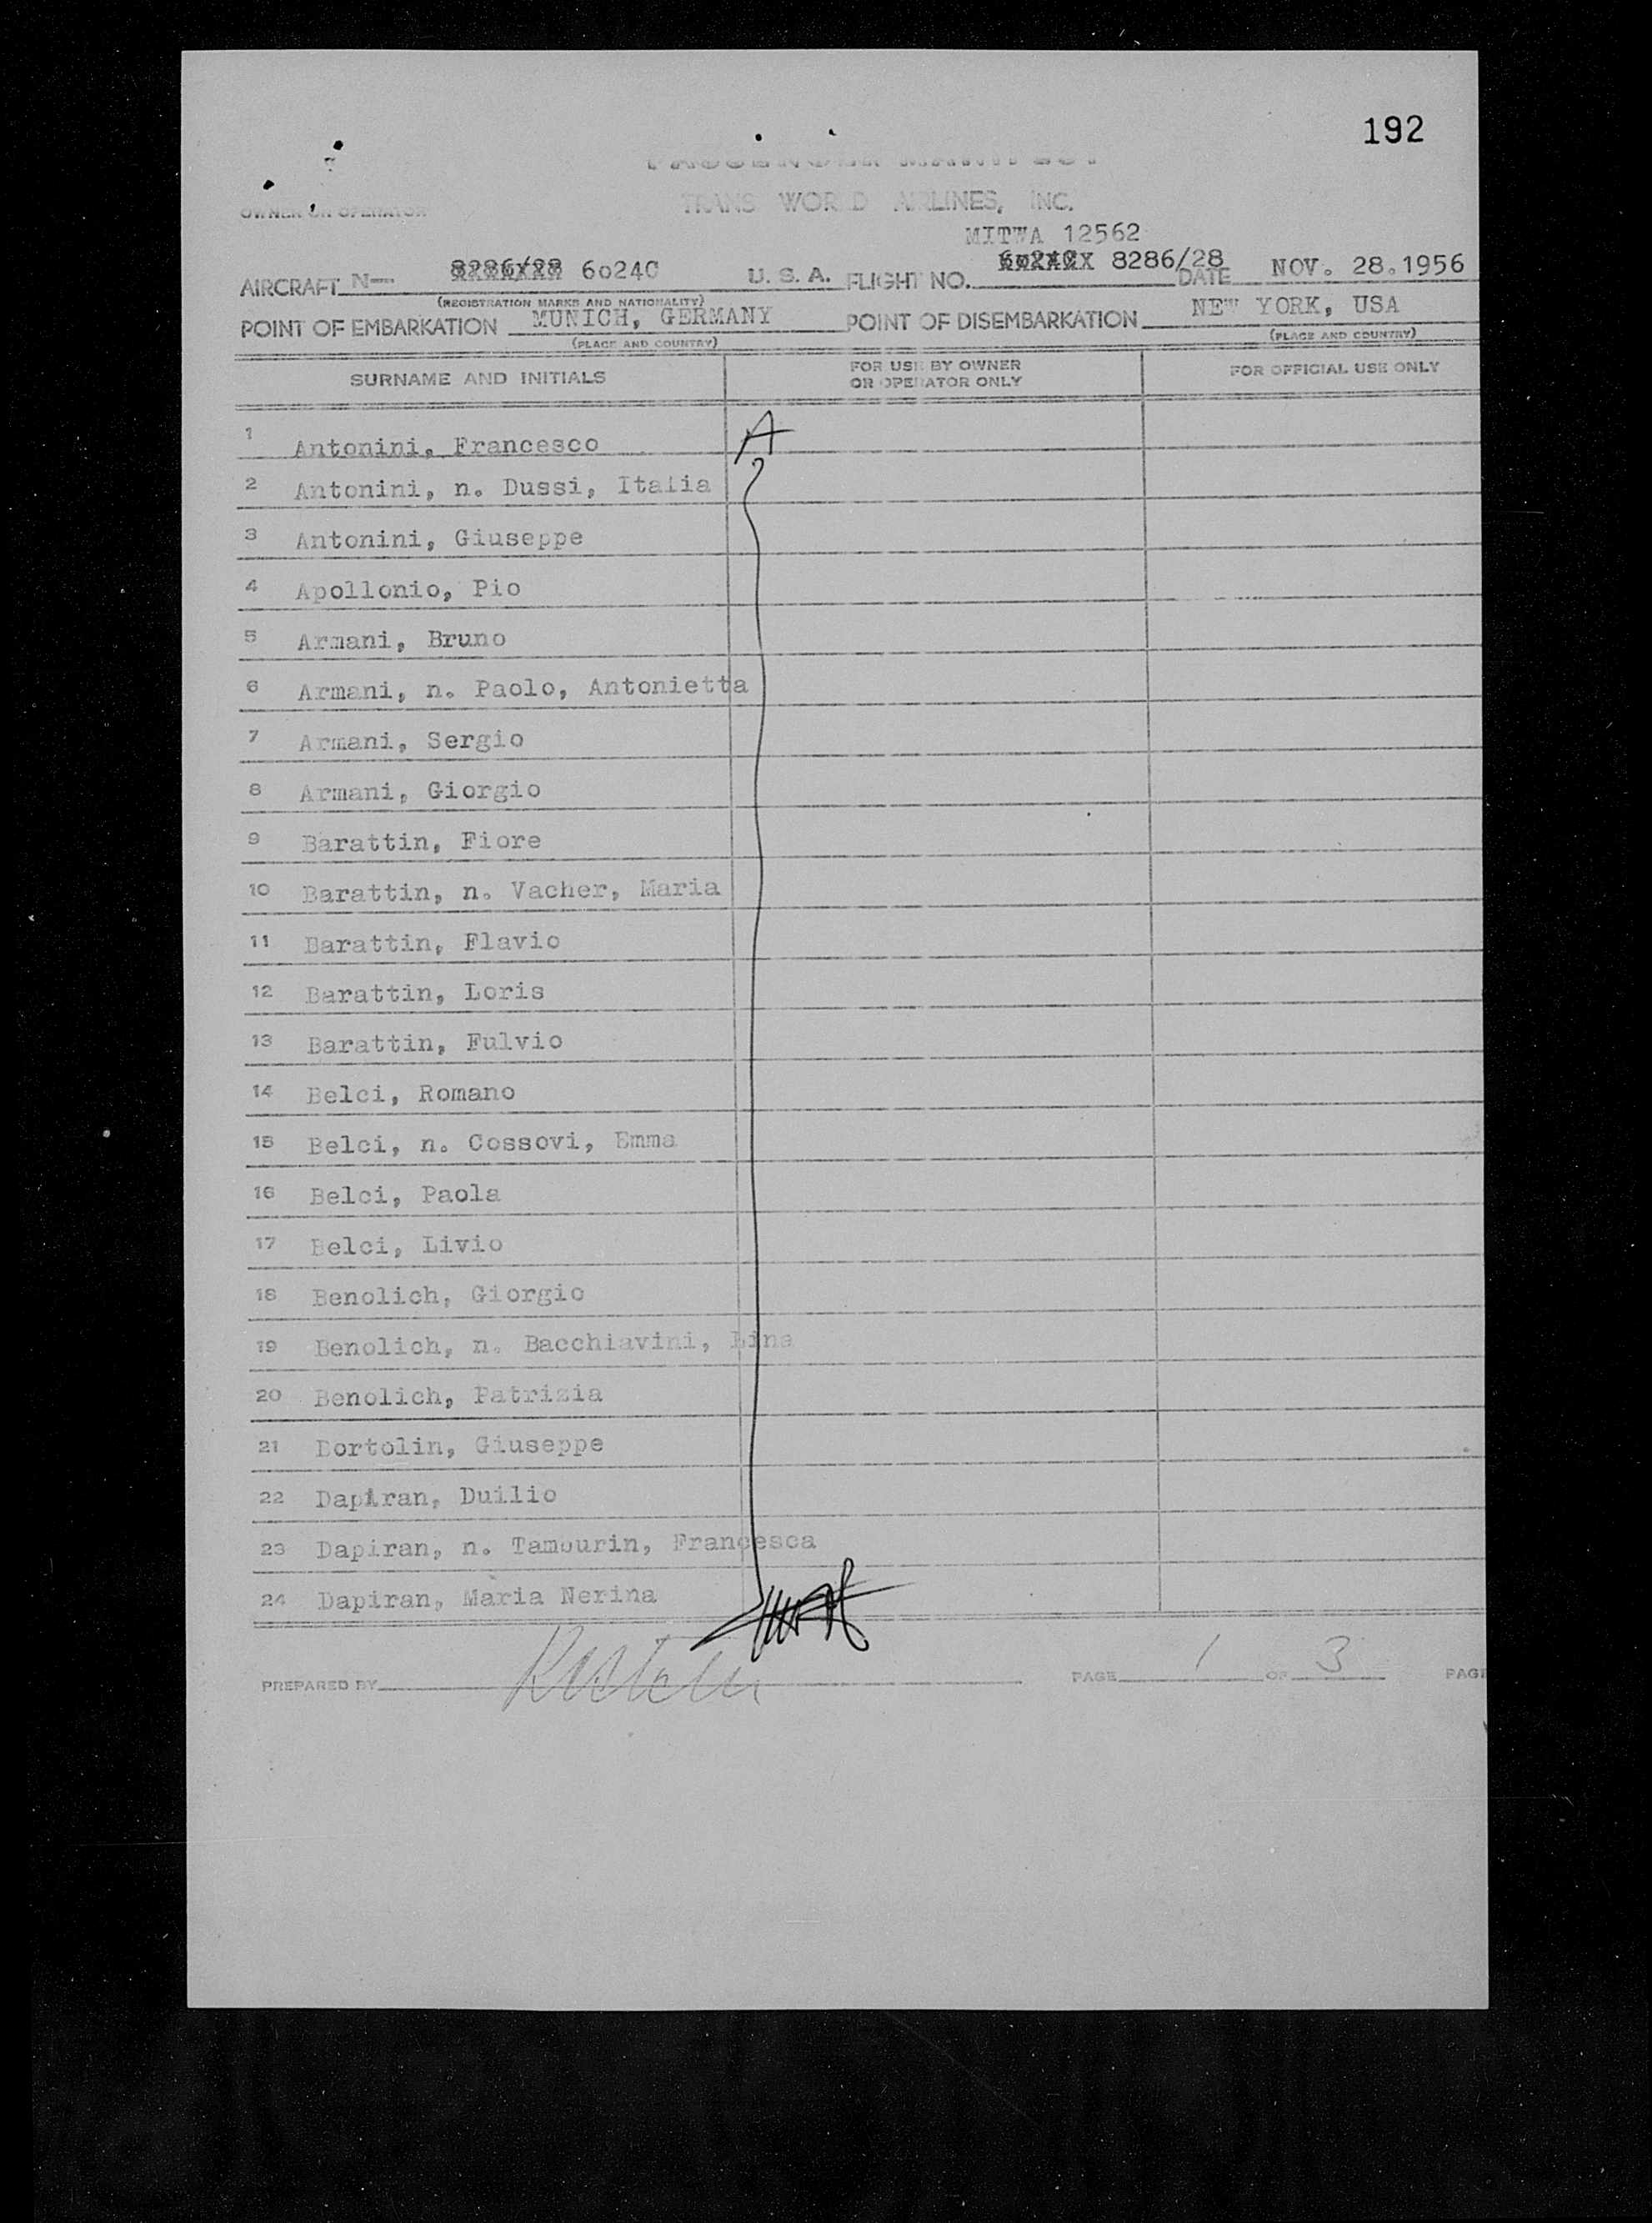 192
PASSENGER MANIFEST
OWNER OR OPERATOR TRANS WORLD AIRLINES, INC.
MITWA 12562
AIRCRAFT N— 8286/28 6o24C U. S. A. FLIGHT NO. 6o24C 8286/28 DATE NOV. 28.1956
(REGISTRATION MARKS AND NATIONALITY)
POINT OF EMBARKATION MUNICH, GERMANY POINT OF DISEMBARKATION NEW YORK, USA
(PLACE AND COUNTRY) (PLACE AND COUNTRY)
SURNAME AND INITIALS FOR USE BY OWNER OR OPERATOR ONLY FOR OFFICIAL USE ONLY
1 Antonini, Francesco A
2 Antonini, n. Dussi, Italia
3 Antonini, Giuseppe
4 Apollonio, Pio
5 Armani, Bruno
6 Armani, n. Paolo, Antonietta
7 Armani, Sergio
8 Armani, Giorgio
9 Barattin, Fiore
10 Barattin, n. Vacher, Maria
11 Barattin, Flavio
12 Barattin, Loris
13 Barattin, Fulvio
14 Belci, Romano
15 Belci, n. Cossovi, Emma
16 Belci, Paola
17 Belci, Livio
18 Benolich, Giorgio
19 Benolich, n. Bacchiavini, Lina
20 Benolich, Patrizia
21 Bortolin, Giuseppe
22 Dapiran, Duilio
23 Dapiran, n. Tamburin, Francesca
24 Dapiran, Maria Nerina
PREPARED BY PAGE 1 OF 3 PAGE